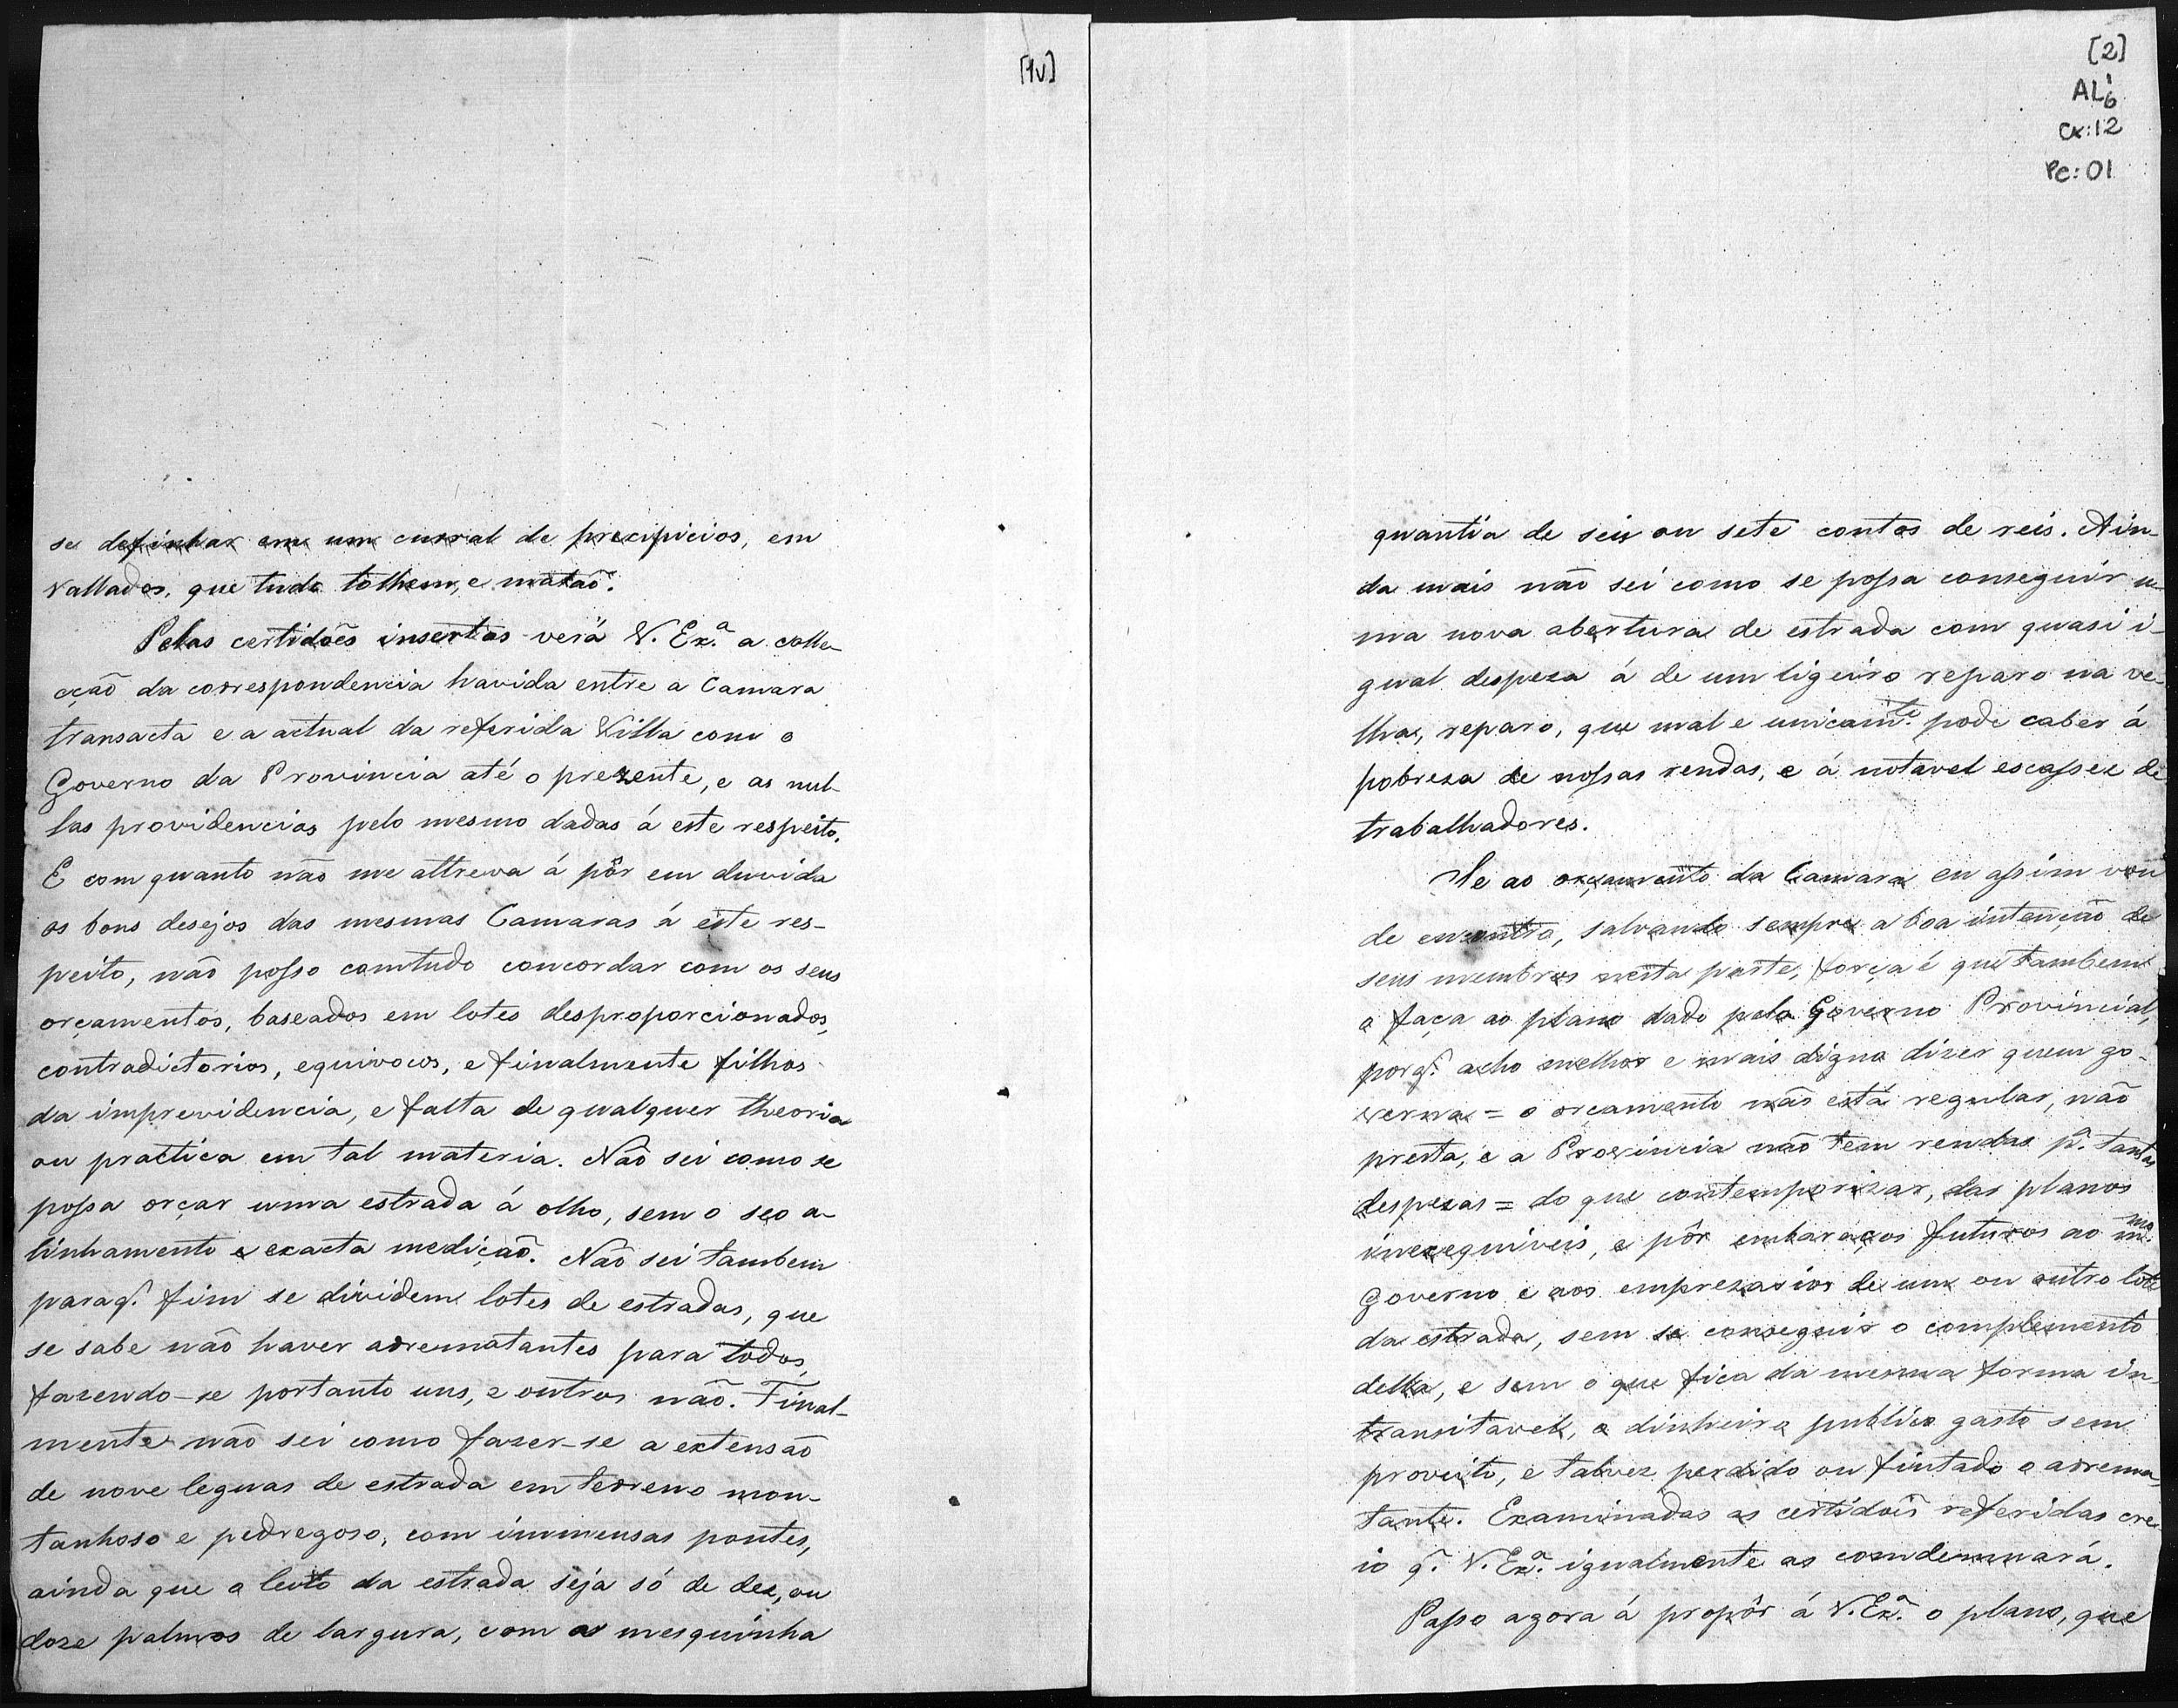 [1v]
se definhar em um curral de precipicios, em
vallados, que tudo tolhem, e matão.
Pelas certidões insertas verá V. Ex.ª a colle-
cção da correspondencia havida entre a Camara
transacta e a actual da referida Villa com o
Governo da Provincia até o prezente, e as nul-
las providencias pelo mesmo dadas á este respeito.
E com quanto não me attreva á pôr em duvida
os bons desejos das mesmas Camaras á este res-
peito, não posso comtudo concordar com os seus
orçamentos, baseados em lotes desproporcionados,
contradictorios, equivocos, e finalmente filhos
da imprevidencia, e falta de qualquer theoria
ou practica em tal materia. Não sei como se
possa orçar uma estrada á olho, sem o seo a-
linhamento e exacta medição. Não sei tambem
paraq. fim se dividem lotes de estradas, que
se sabe não haver arrematantes para todos,
fazendo-se portanto uns, e outros não. Final-
mente não sei como fazer-se a extensão
de nove leguas de estrada em terreno mon-
tanhoso e pedregoso, com immensas pontes,
ainda que o leito da estrada seja só de dez, ou
doze palmos de largura, com a mesquinha
[2]
AL6
Cx:12
Pc:01
quantia de seis ou sete contos de reis. Ain-
da mais não sei como se possa conseguir u-
ma nova abertura de estrada com quasi i-
gual despeza á de um ligeiro reparo na ve-
lha, reparo, que mal e unicam.te pode caber á
pobreza de nossas rendas, e á notavel escassez de
trabalhadores.
Se ao orçamento da Camara eu assim vou
de encontro, salvando sempre a boa intenção de
seus membros nesta parte, força é que tambem
o faça ao plano dado pelo Governo Provincial,
porq. acho melhor e mais digno dizer quem go-
verna = o orçamento não está regular, não
presta, e a Provincia não tem rendas p.ª tantas
despezas = do que contemporizar, dar planos
inexequiveis, e pôr embaraços futuros ao m.mo
Governo e aos emprezarios de um ou outro lote
da estrada, sem se conseguir o complemento
della, e sem o que fica da mesma forma in-
transitavel, o dinheiro publico gasto sem
proveito, e talvez perdido ou fintado o arrema-
tante. Examinadas as certidões referidas cre-
io q. V. Ex.ª igualmente as comdemnará.
Passo agora á propôr á V. Ex.ª o plano, que